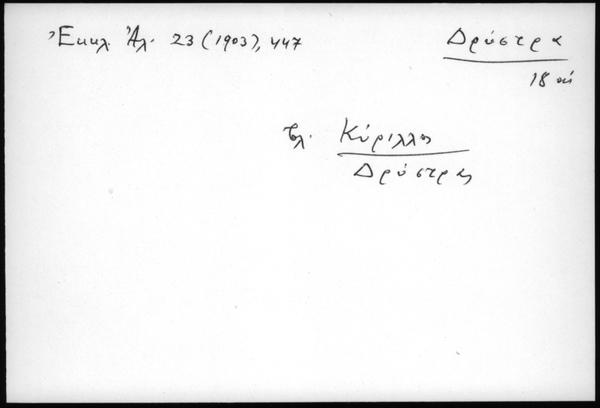 Ἐκκλ. Ἀλ. 23 (1903), 447
Δρύστρα
18 αἰ
βλ. Κύριλλος
Δρύστρας